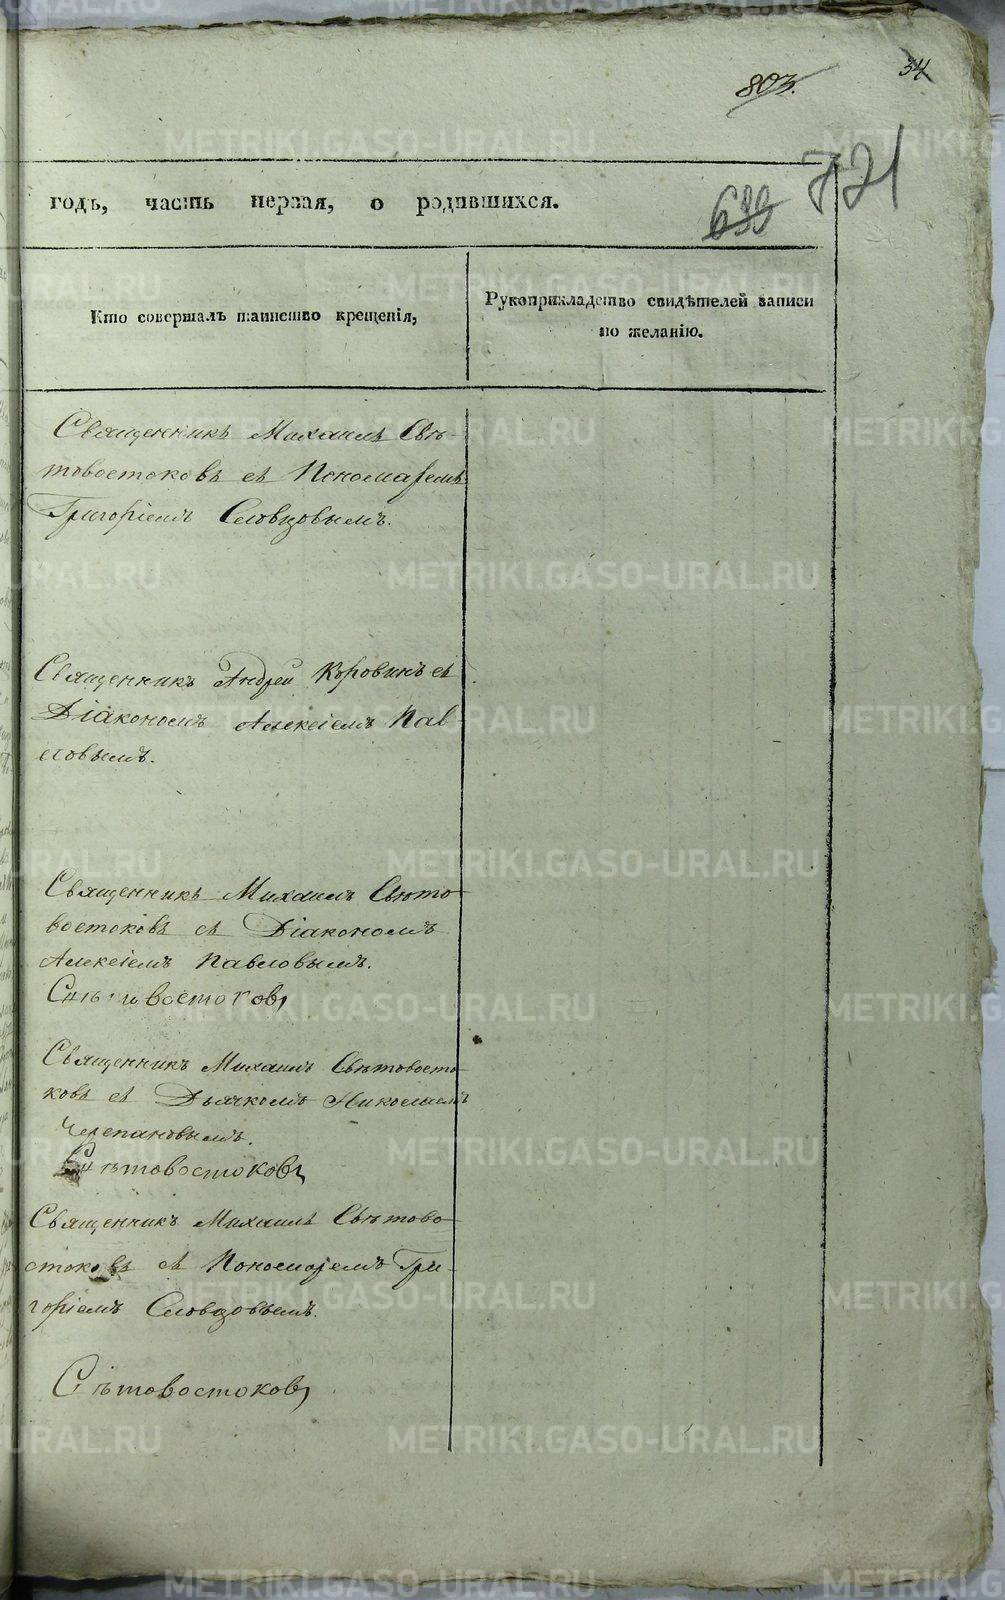 34
803.
721
633
годъ, часть первая, о родившихся.
Кто совершалъ таинство крещенія,
Рукоприкладство свидѣтелей записи
по желанію.
Священникъ Михаилъ Свѣ-
товостоковъ съ Пономаремъ
Григоріемъ Словцовымъ.
Священникъ Андрей Коровинъ съ
Діакономъ Алексіемъ Пав-
ловымъ.
Священникъ Михаилъ Свѣто
востоковъ съ Діакономъ
Алексіемъ Павловымъ.
Свѣтовостоковъ
Священникъ Михаилъ Свѣтовосто
ковъ съ Дьячкомъ Николаемъ
Черепановымъ.
Свѣтовостоковъ
Священникъ Михаилъ Свѣтово
стоковъ съ Пономаремъ Гри-
горіемъ Словцовымъ.
Свѣтовостоковъ
METRIKI.GASO-URAL.RU